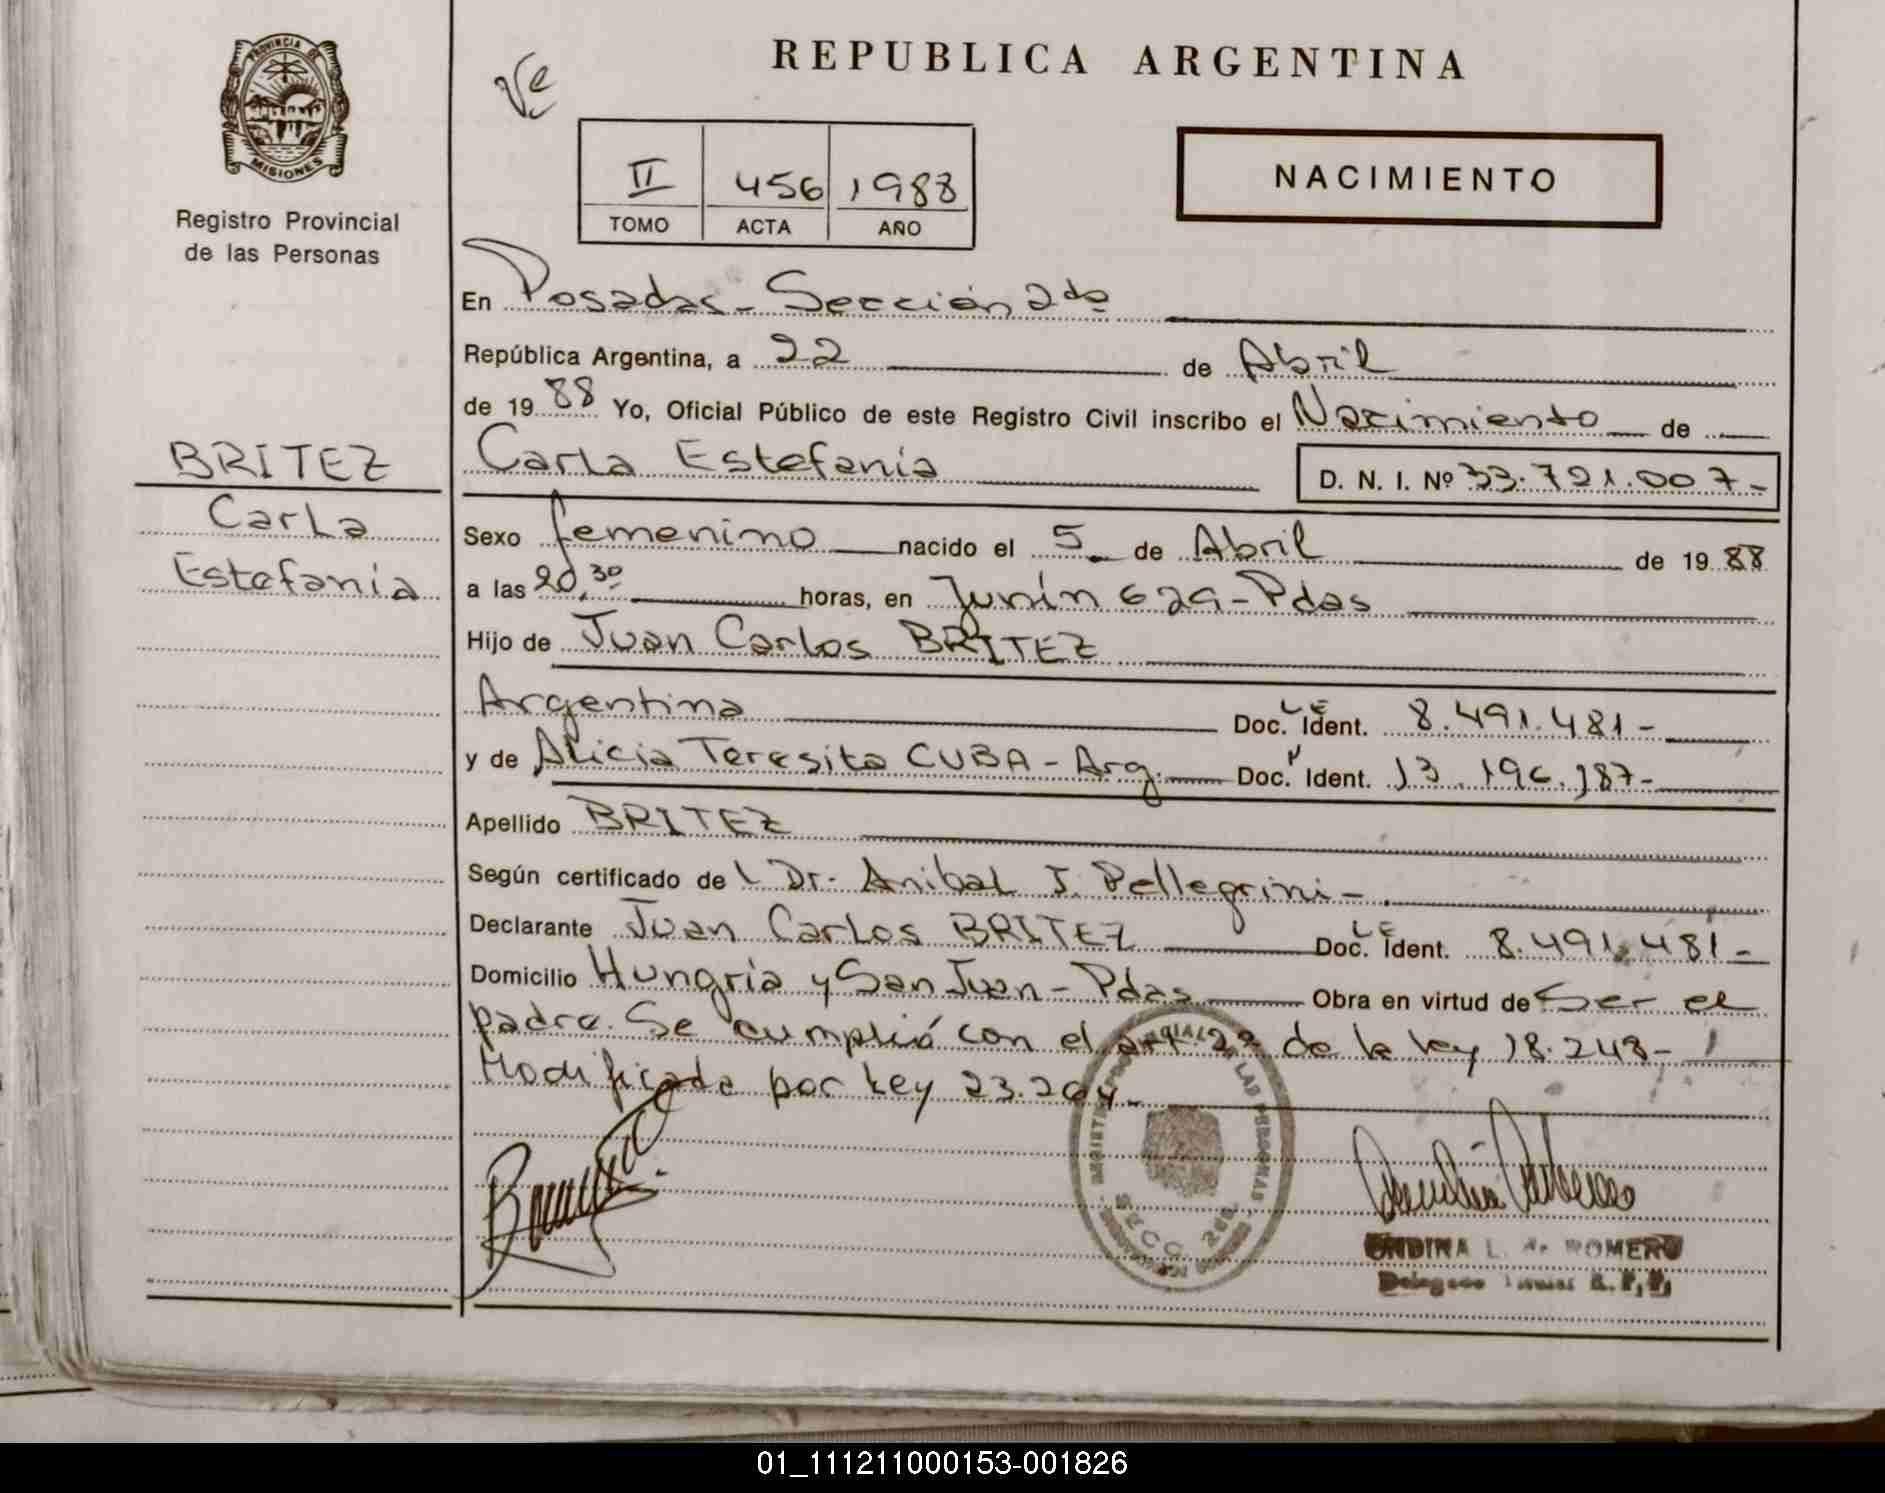 PROVINCIA DE
MISIONES
Registro Provincial
de las Personas
BRITEZ
Carla
Estefanía
REPUBLICA ARGENTINA
NACIMIENTO
II 456 1988
TOMO ACTA AÑO
En Posadas - Sección 2da
República Argentina, a 22 de Abril
de 1988 Yo, Oficial Público de este Registro Civil inscribo el Nacimiento de
Carla Estefanía D. N. I. Nº 33.721.007-
Sexo femenino nacido el 5 de Abril de 1988
a las 20,30 horas, en Junín 629 - Pdas
Hijo de Juan Carlos BRITEZ
Argentina Doc. Ident. LE 8.491.481-
y de Alicia Teresita CUBA - Arg. Doc. Ident. 13.196.187-
Apellido BRITEZ
Según certificado de l Dr. Anibal J. Pellegrini-
Declarante Juan Carlos BRITEZ Doc. Ident. LE 8.491.481-
Domicilio Hungría y San Juan - Pdas Obra en virtud de Ser el
padre. Se cumplió con el art. de la ley 18.248-
Modificada por Ley 23.264-
SECC. 2da.
ONDINA L. de ROMERO
Delegado
01_111211000153-001826